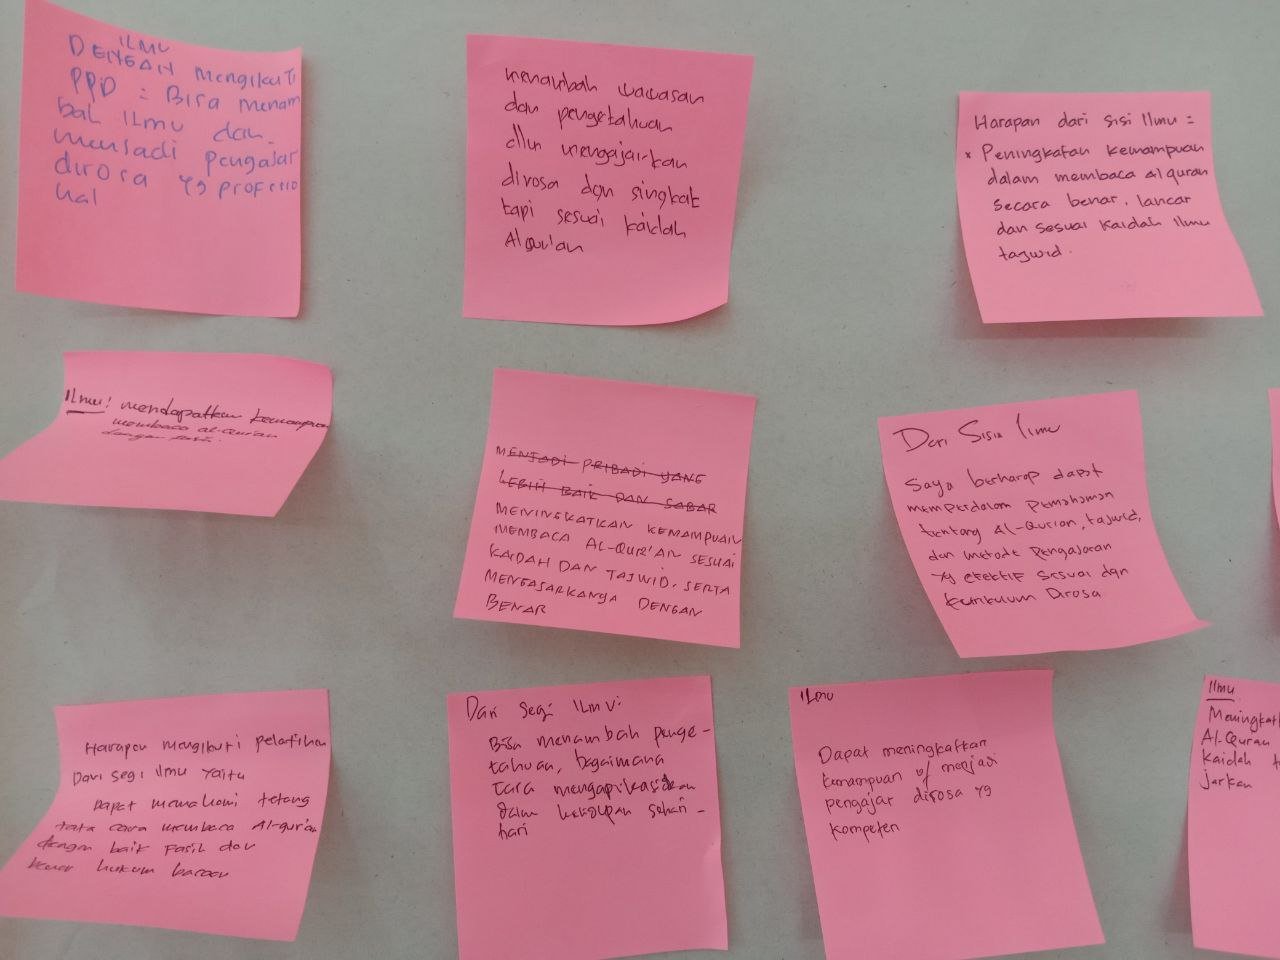 ILMU
DENGAN Mengikuti
PPD = Bisa menam
bah ILMU dan
menjadi pengajar
dirosa yg profesio
nal
menambah wawasan
dan pengetahuan
dlm mengajarkan
dirosa dgn singkat
tapi sesuai kaidah
Alqur'an
Harapan dari sisi Ilmu =
* Peningkatan kemampuan
dalam membaca Alquran
secara benar, lancar
dan sesuai kaidah Ilmu
tajwid.
Ilmu: mendapatkan kemampuan
membaca al-Qur'an
dengan
MENJADI PRIBADI YANG
LEBIH BAIK DAN SABAR
MENINGKATKAN KEMAMPUAN
MEMBACA AL-QUR'AN SESUAI
KAIDAH DAN TAJWID, SERTA
MENGAJARKANYA DENGAN
BENAR
Dari Sisi Ilmu
Saya berharap dapat
memperdalam pemahaman
tentang Al-Qur'an, tajwid,
dan metode pengajaran
yg efektif sesuai dgn
kurikulum Dirosa
Harapan mengikuti pelatihan
Dari segi ilmu yaitu
Dapat memahami tetang
tata cara membaca Al-qur'an
dengan baik Fasih dan
benar hukum bacaan
Dari segi ILMU:
Bisa menambah penge-
tahuan, bagaimana
cara mengaplikasikan
dalam kehidupan sehari-
hari
ILmu
Dapat meningkatkan
kemampuan u/ menjadi
pengajar dirosa yg
kompeten
Ilmu
Meningkat
Al-Quran
kaidah t
jarkan